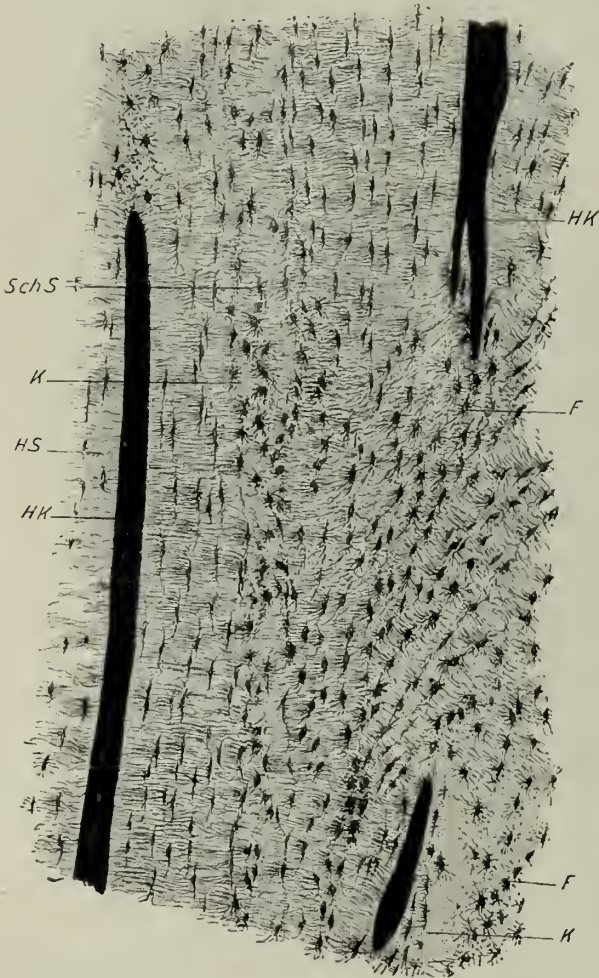 HK
SchS
K
F
HS
HK
F
K